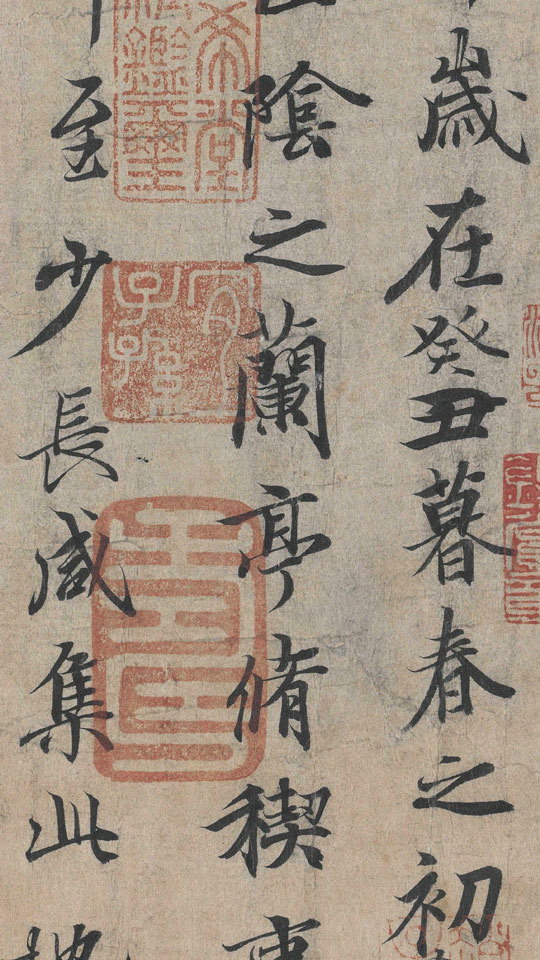 歲在癸丑暮春之初
陰之蘭亭脩稧事
至少長咸集此地